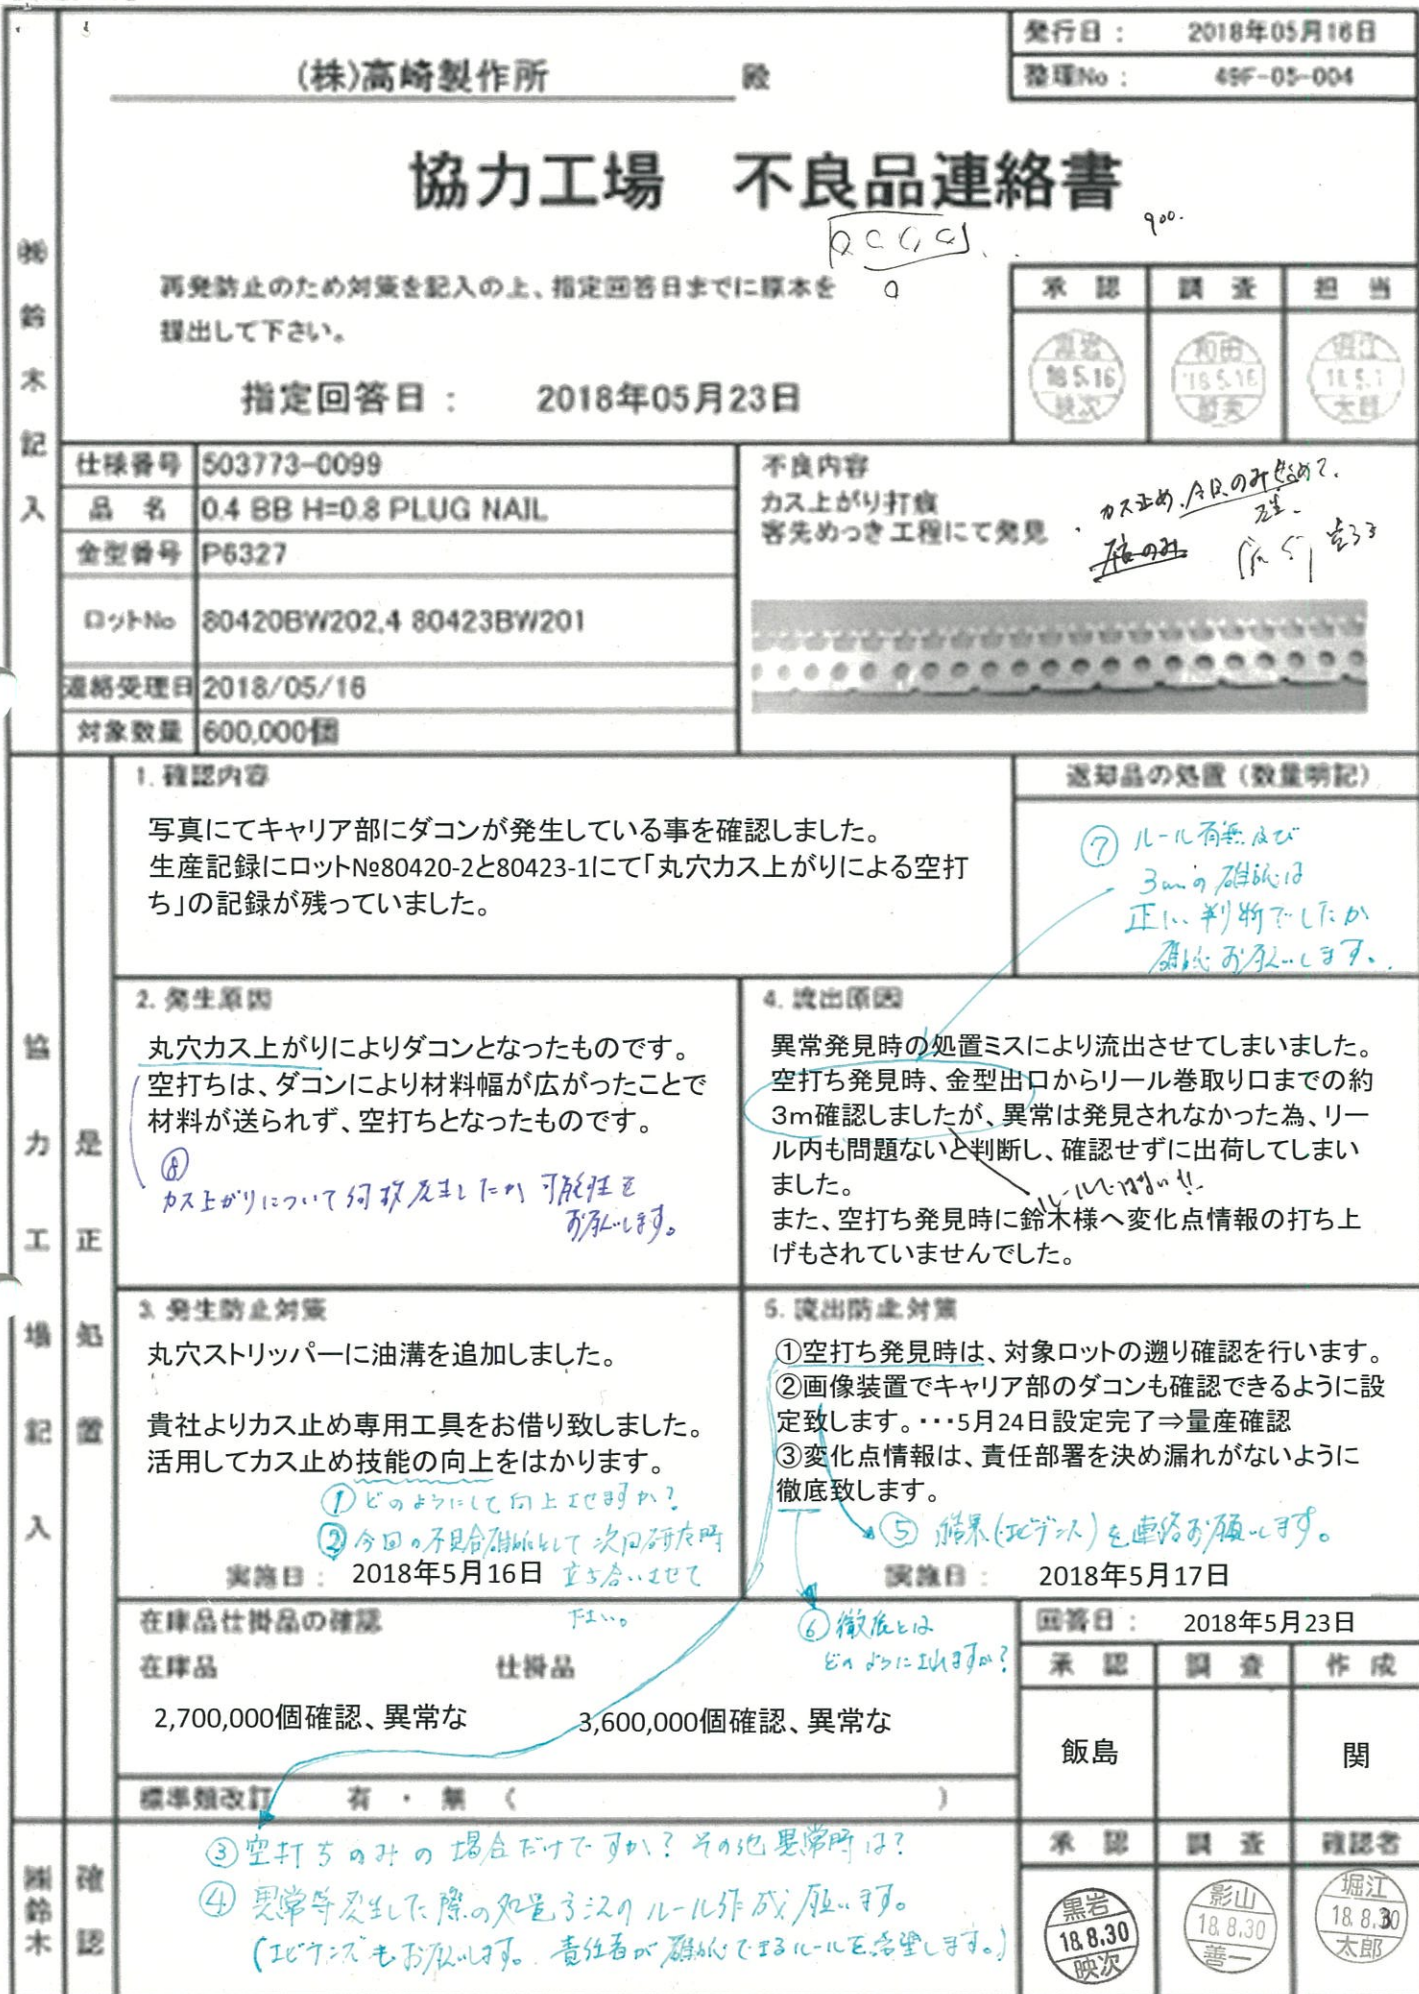 発行日： 2018年05月16日
整理No： 49F-05-004
(株)高崎製作所 殿
協力工場 不良品連絡書
900.
再発防止のため対策を記入の上、指定回答日までに原本を
提出して下さい。
指定回答日： 2018年05月23日
承認 調査 担当
黒岩 '18.5.16 映次
和田 '18.5.16
堀江 太郎
㈱鈴木記入
仕様番号 503773-0099
品名 0.4 BB H=0.8 PLUG NAIL
金型番号 P6327
ロットNo 80420BW202,4 80423BW201
連絡受理日 2018/05/16
対象数量 600,000個
不良内容
カス上がり打痕
客先めっき工程にて発見
カス止め
協力工場記入
是正処置
1. 確認内容
写真にてキャリア部にダコンが発生している事を確認しました。
生産記録にロット№80420-2と80423-1にて「丸穴カス上がりによる空打
ち」の記録が残っていました。
返却品の処置（数量明記）
⑦ ルール有無及び
3mの確認は
正しい判断でしたか
確認お願いします。
2. 発生原因
丸穴カス上がりによりダコンとなったものです。
空打ちは、ダコンにより材料幅が広がったことで
材料が送られず、空打ちとなったものです。
⑧
カス上がりについて何故発生したか 可能性を
お願いします。
4. 流出原因
異常発見時の処置ミスにより流出させてしまいました。
空打ち発見時、金型出口からリール巻取り口までの約
3m確認しましたが、異常は発見されなかった為、リー
ル内も問題ないと判断し、確認せずに出荷してしまい
ました。
ルールではない!!
また、空打ち発見時に鈴木様へ変化点情報の打ち上
げもされていませんでした。
3. 発生防止対策
丸穴ストリッパーに油溝を追加しました。
貴社よりカス止め専用工具をお借り致しました。
活用してカス止め技能の向上をはかります。
① どのようにして向上させますか？
② 今回の不具合確認として 次回研磨時
立ち合いさせて
下さい。
実施日： 2018年5月16日
5. 流出防止対策
①空打ち発見時は、対象ロットの遡り確認を行います。
②画像装置でキャリア部のダコンも確認できるように設
定致します。・・・5月24日設定完了⇒量産確認
③変化点情報は、責任部署を決め漏れがないように
徹底致します。
⑤ 結果(エビデンス)を連絡お願いします。
実施日： 2018年5月17日
⑥ 徹底とは
どのようにされますか？
在庫品仕掛品の確認
在庫品 仕掛品
2,700,000個確認、異常な 3,600,000個確認、異常な
標準類改訂 有 ・ 無 （ ）
回答日： 2018年5月23日
承認 調査 作成
飯島 関
㈱鈴木 確認
③ 空打ちのみの場合だけですか？その他異常時は？
④ 異常等発生した際の処置方法のルール作成願います。
(エビデンスもお願いします。責任者が確認できるルールを希望します。)
承認 調査 確認者
黒岩 18.8.30 映次
影山 18.8.30 善一
堀江 18.8.30 太郎